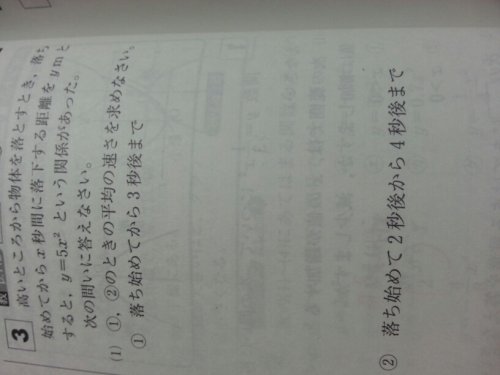 3 高いところから物体を落とすとき、落ち
始めてからx秒間に落下する距離をymと
すると、y=5x²という関係があった。
次の問いに答えなさい。
(1) ①、②のときの平均の速さを求めなさい。
① 落ち始めてから3秒後まで
② 落ち始めて2秒後から4秒後まで